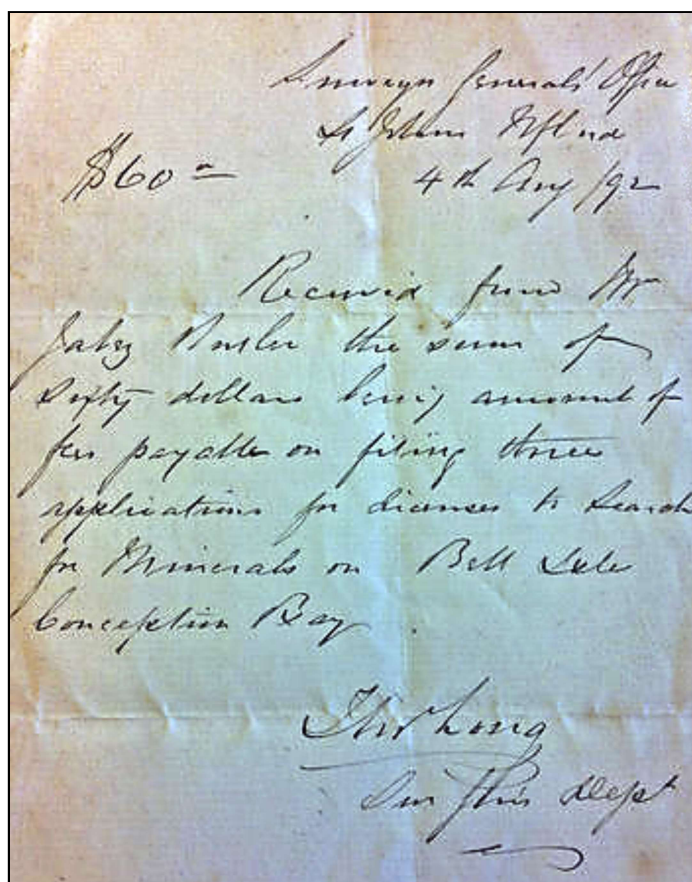 Surveyor Generals' Office
St Johns Nfland
$60.00 4th Aug /92
Received from Mr
Jabez Butler the sum of
Sixty dollars being amount of
fees payable on filing three
applications for Licenses to Search
for Minerals on Bell Isle
Conception Bay.
Long
Sur Gen's Dept